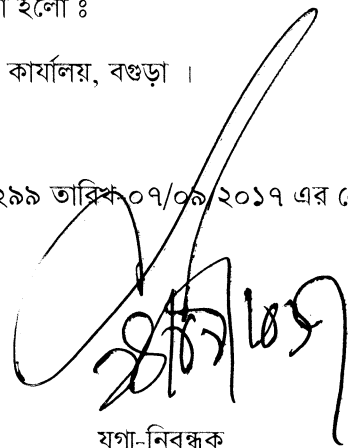 হলো ঃ
কার্যালয়, বগুড়া ।
২৯৯ তারিখ-০৭/০৯/২০১৭ এর
যুগ্ম-নিবন্ধক